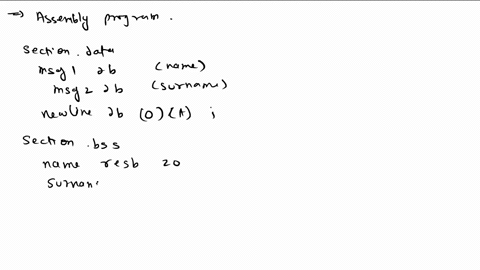 → Assembly program.
section .data
msg1 db (name)
msg2 db (surname)
newline db (0)(A) ;
section .bss
name resb 20
surnam